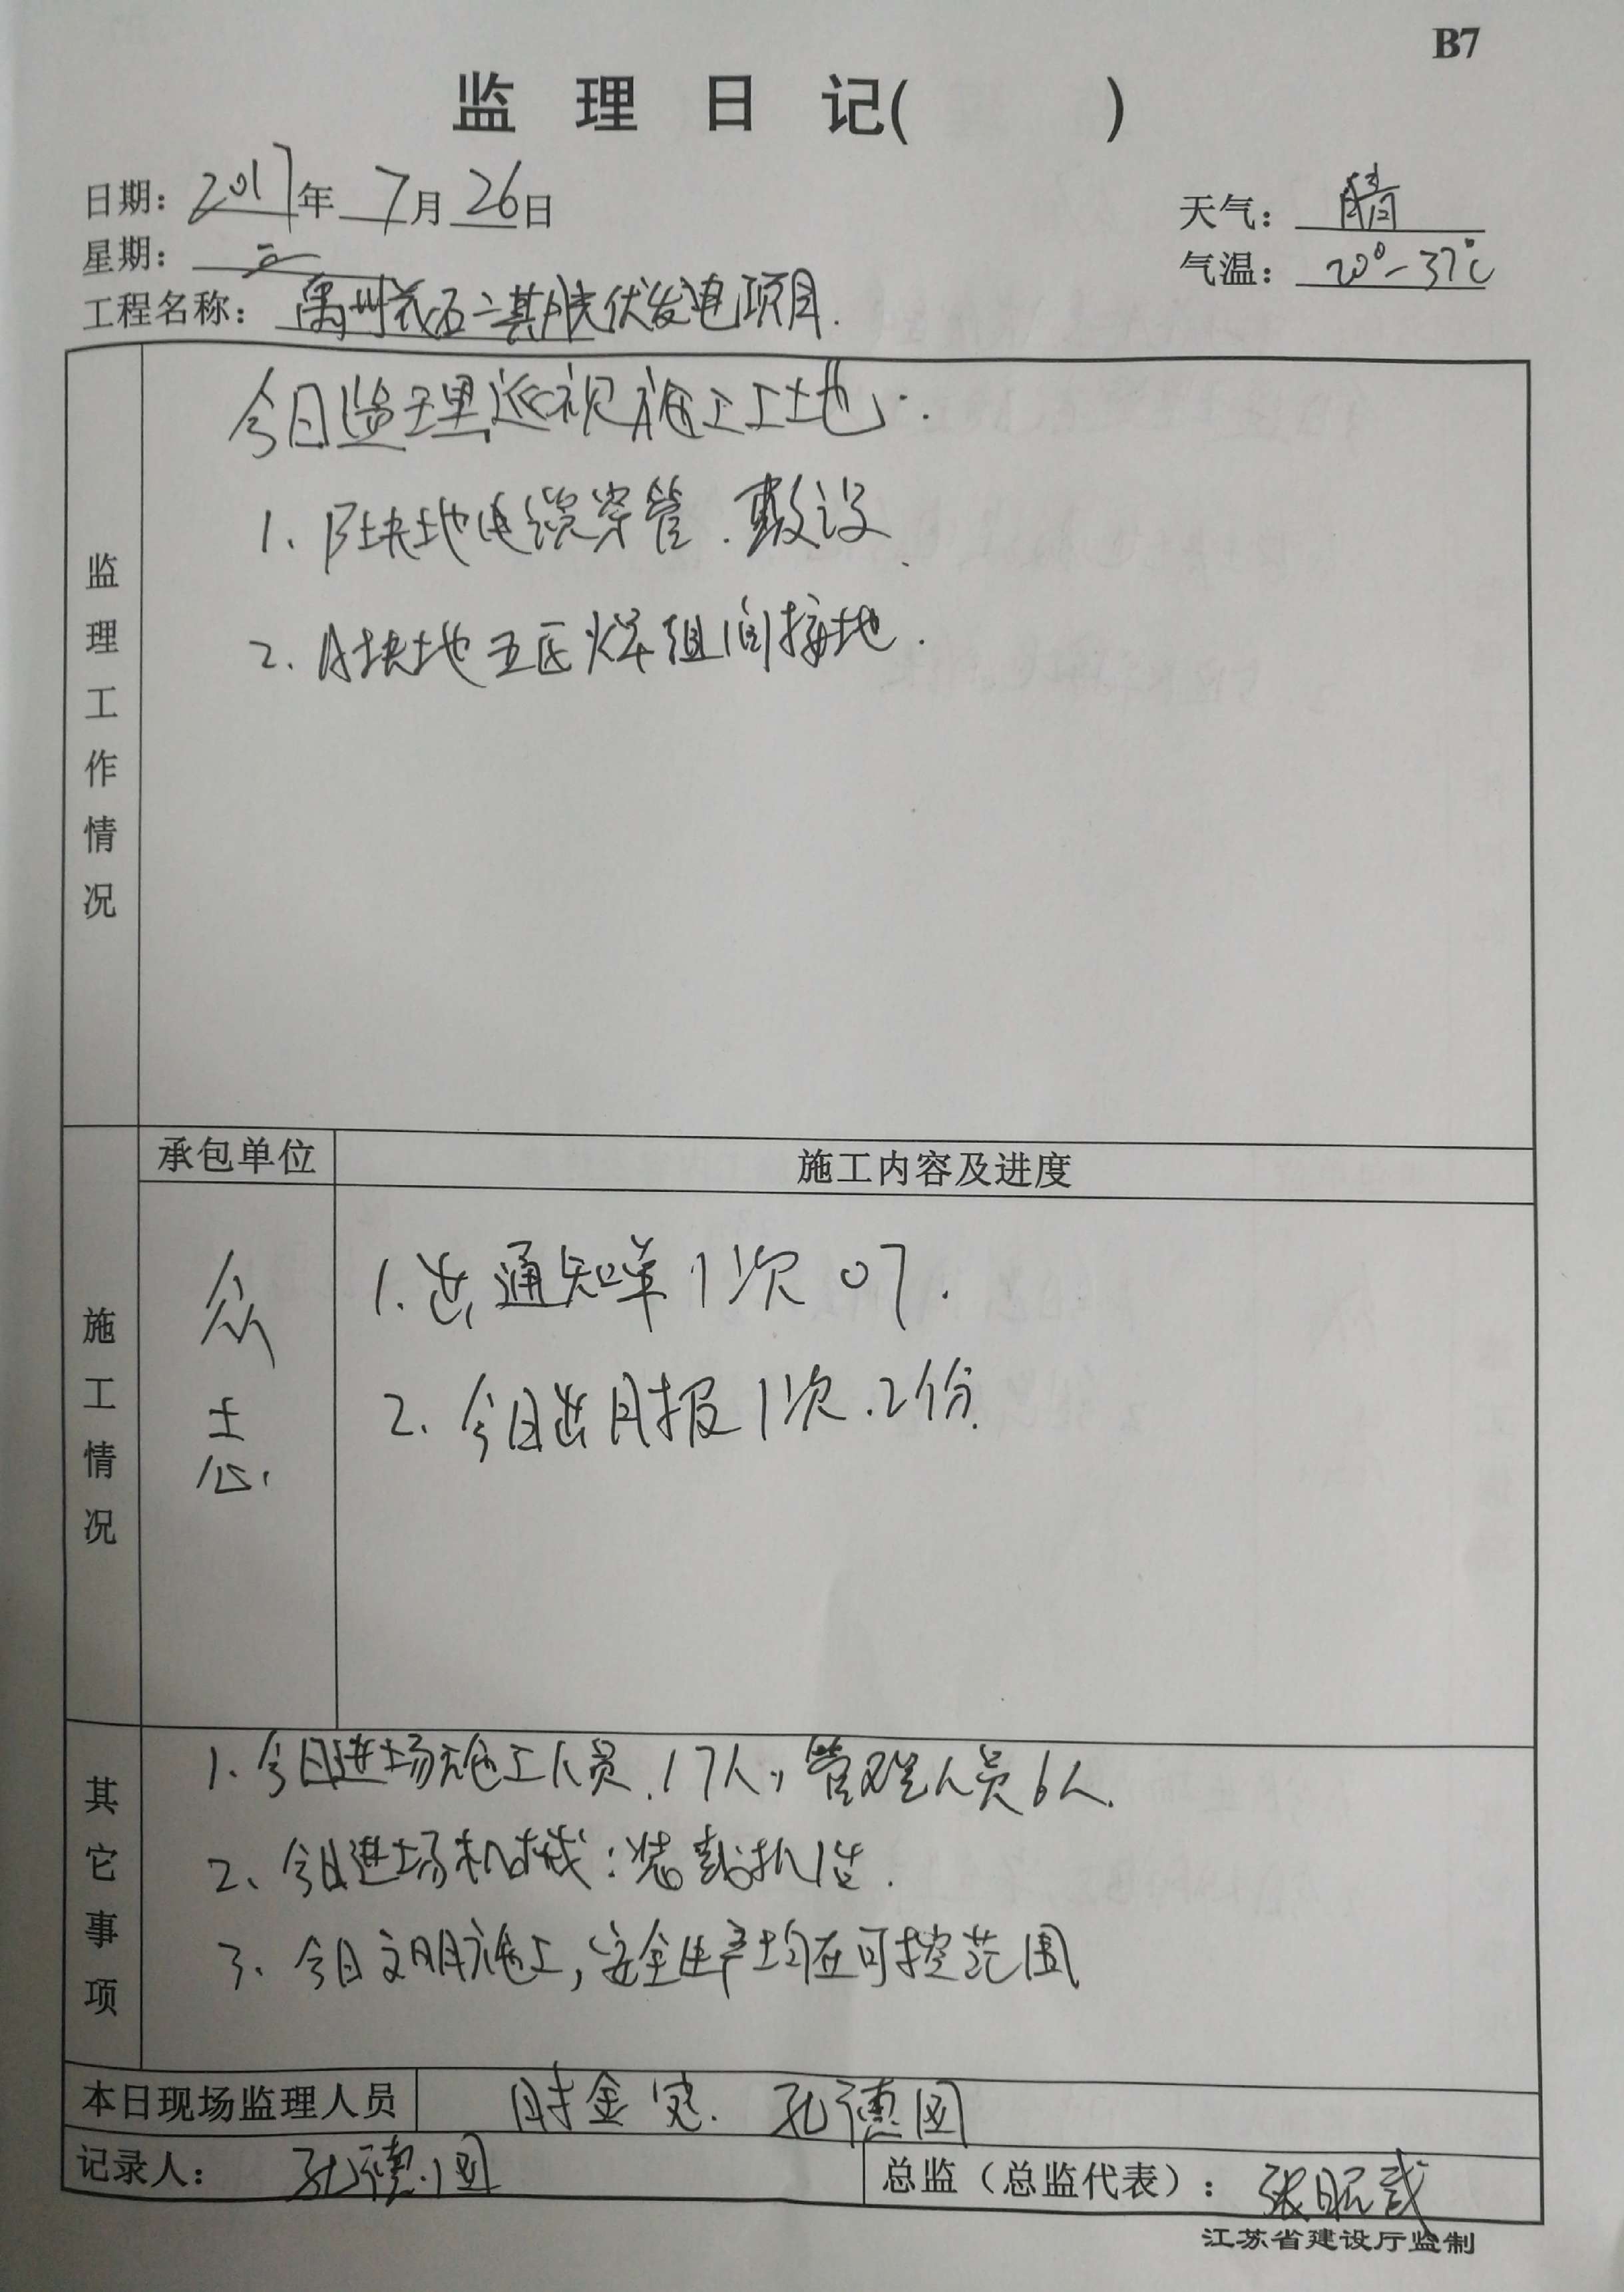 B7
监理日记( )
日期: 2017年 7月 26日
天气: 晴
星期: 三
气温: 20°-37℃
工程名称: 禹州花石二期光伏发电项目.
监理工作情况
今日监理巡视施工工地:
1、B块地电缆穿管.敷设
2、A块地五区焊组间接地.
施工情况
承包单位
施工内容及进度
众志
1.送通知单1次 07.
2、今日送月报1次.2份.
其它事项
1、今日进场施工人员.17人,管理人员6人.
2、今日进场机械:装载机1台.
3、今日文明施工,安全生产均在可控范围
本日现场监理人员
金 孔德国
记录人: 孔德国
总监(总监代表): 张昭武
江苏省建设厅监制